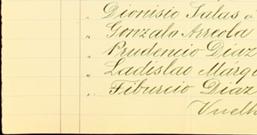 " Dionisio Salas
" Gonzalo Arreola
" Prudencio Diaz
" Ladislao Márq
" Tiburcio Diaz
Vuelt